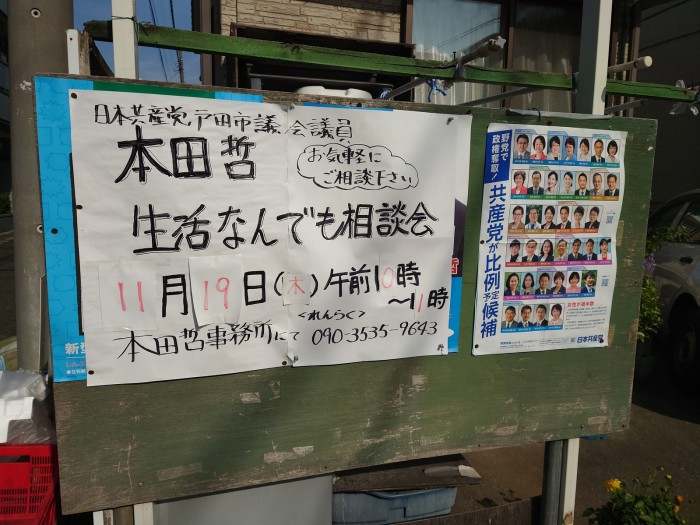 日本共産党戸田市議会議員
本田哲
お気軽に
ご相談下さい
生活なんでも相談会
11月19日(木)午前10時
~11時
<れんらく>
本田哲事務所にて 090-3535-9643
野党で
政権奪取!
共産党が比例予定候補
日本共産党